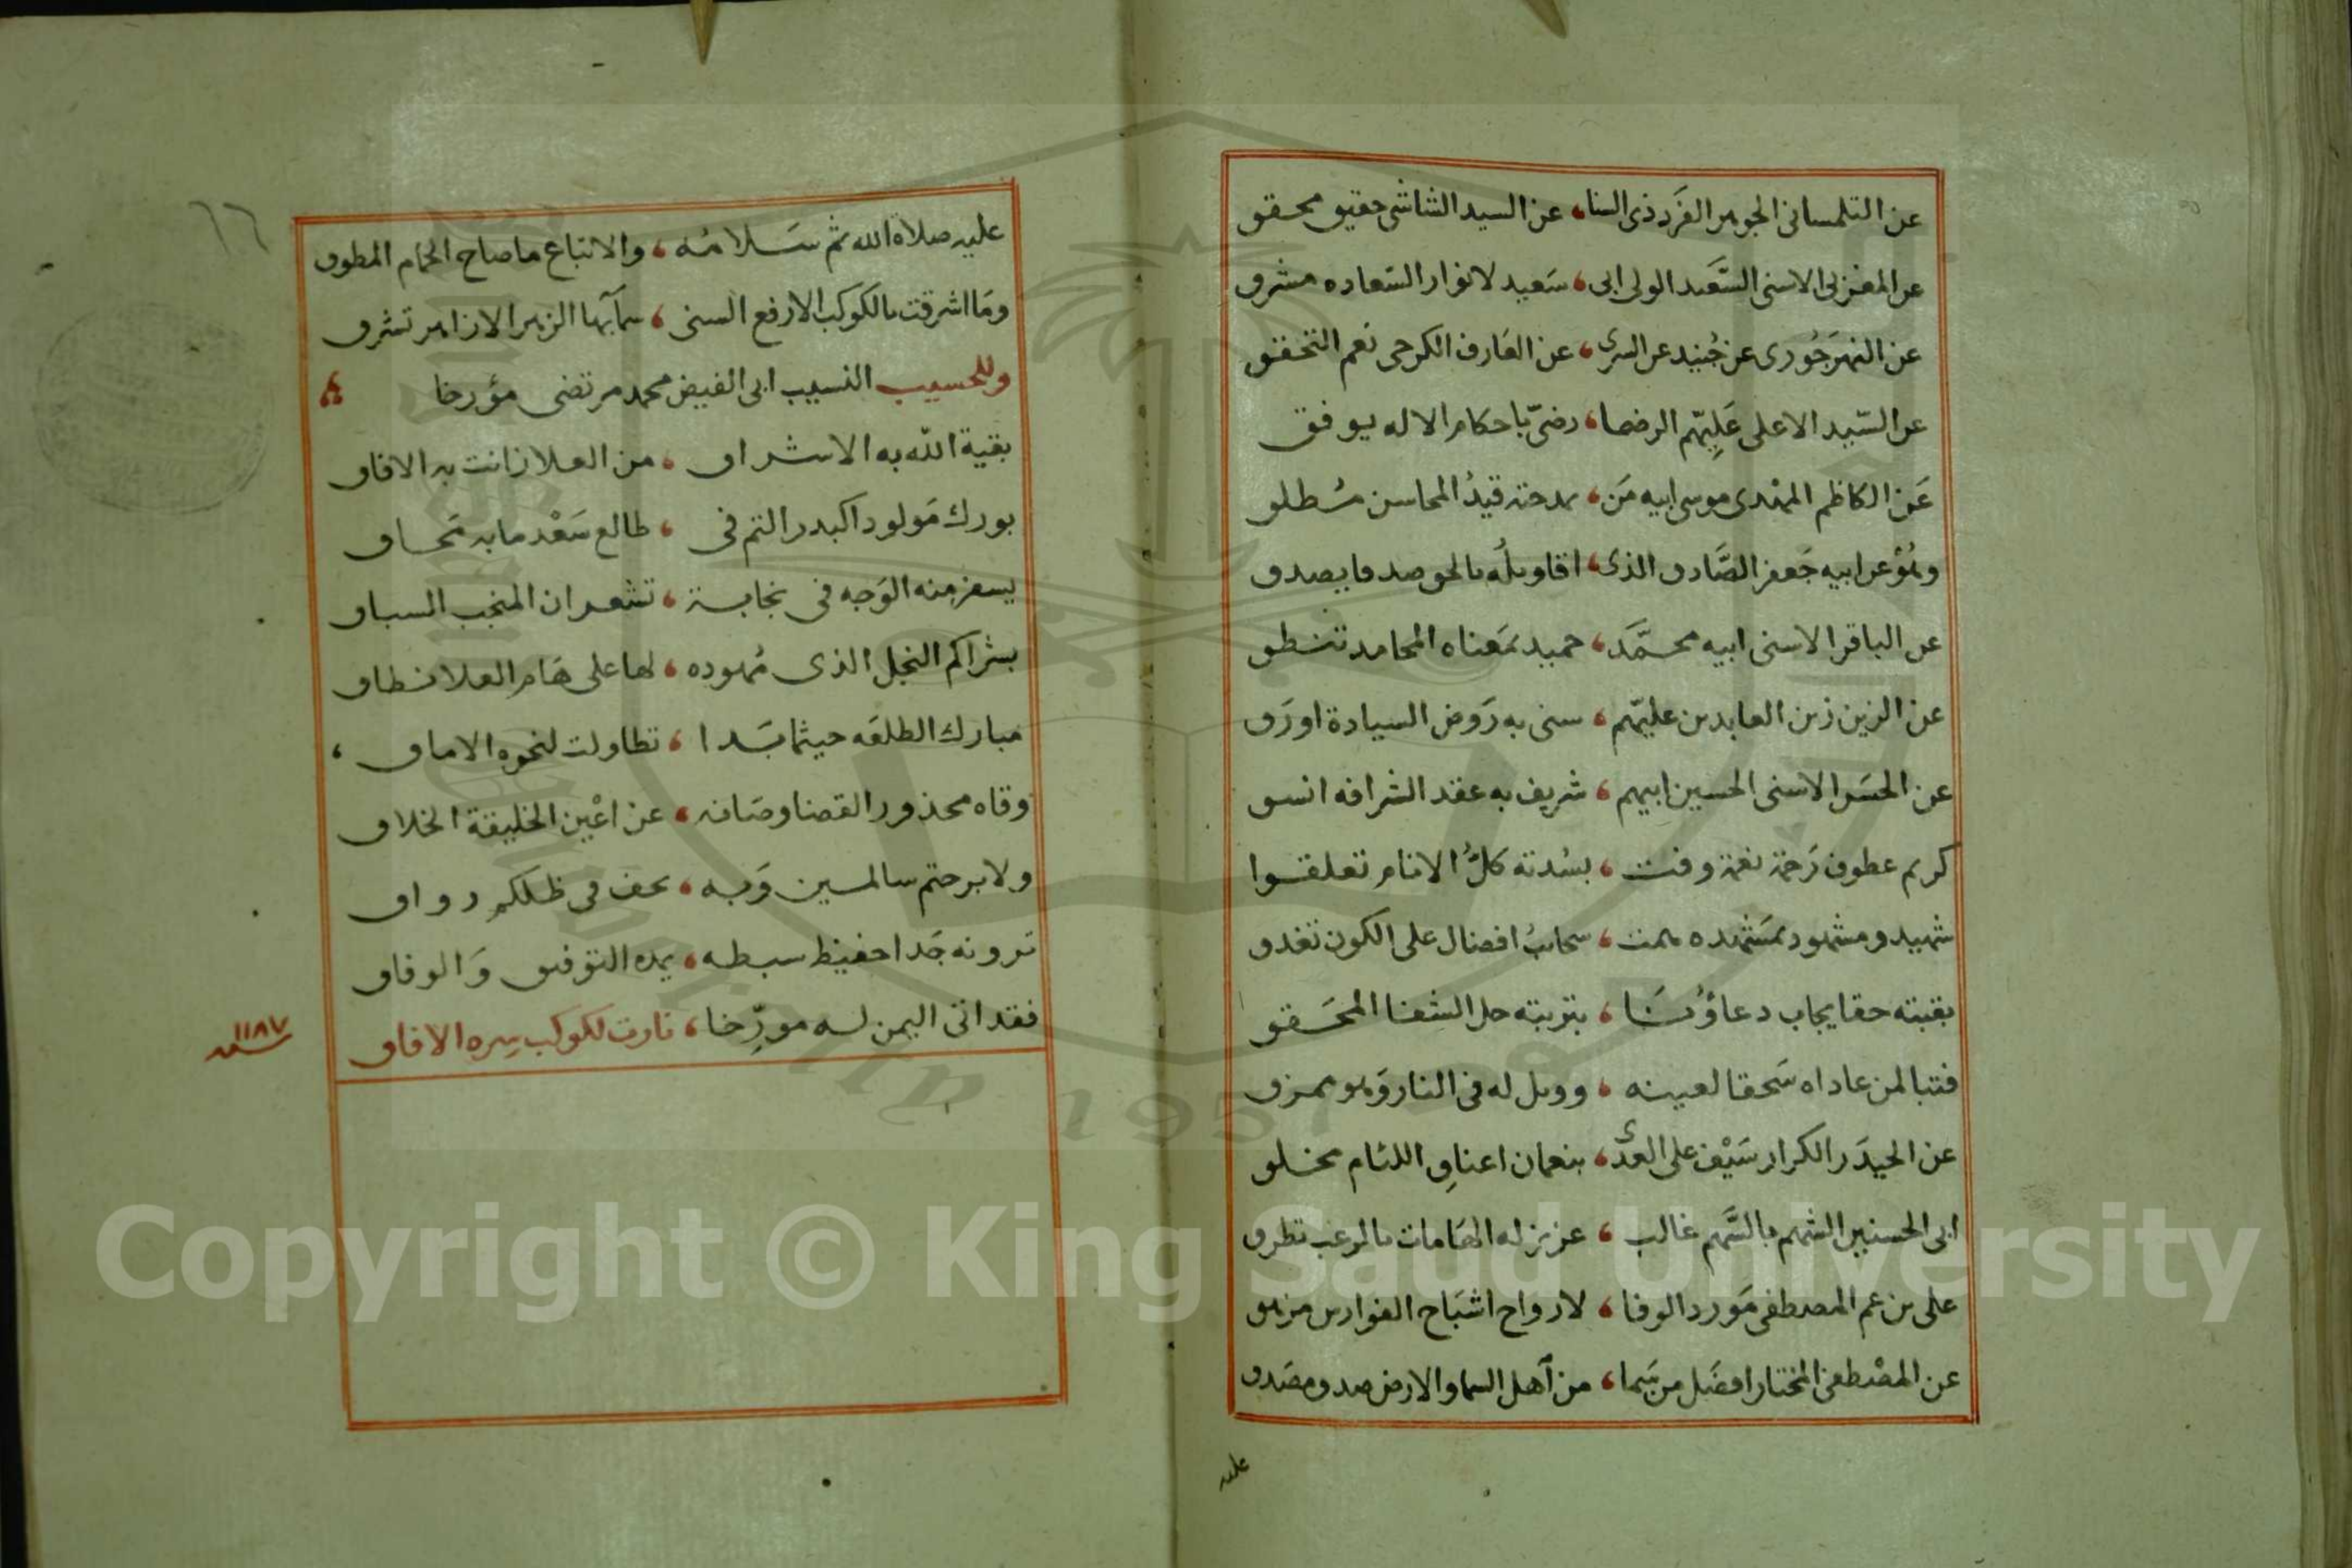 عن التلمسانى الجوهر الفرد ذى السنا، عن السيد الشاشى حقيق محقق
عن المغربى الاسنى السَّعَيد الولى ابى، سَعيد لانوار السَعاده مشرق
عن النهرَجُورى عن جُنيد عن السرى، عن العَارف الكرخى نعم التحقق
عن السّيد الاعلى عَلِيّهم الرضا، رضىّ باحكام الاله يوفق
عَن الكاظم المهْدى موسى ابيه مَن، بمدحته قيدُ المحاسن مُطلق
وهُوْ عن ابيه جَعفر الصَّادق الذى، اقاويلُه بالحق صدقا يصدق
عن الباقر الاسنى ابيه محمَّد، حميد بمَعناه المحامد تنطق
عن الزين زين العابدين عليّهم، سنى به رَوض السيادة اورَق
عن الحَسَن الاسنى الحسين ابيهم، شريف به عقد الشرافه انسق
كريم عطوف رَحمة نعمة وفت، بسُدته كلُّ الانام تعلقوا
شهيد ومشهود بمَشهَده همت، سحابُ افضال على الكون تغدق
بقبته حقا يجاب دعاؤنَا، بتربته حل الشفا المحَقق
فتبا لمن عاداه سَحقا لعينه، وويل له فى النار وَهو ممزق
عن الحيدَر الكرار سَيْف على العدى، بنعمان اعناقِ اللئام مخلق
ابى الحسنين الشهم بالسَّهم غالب، عزيز له الهَامات بالرعب تطرق
على بن عم المصطفى مَورد الوفا، لارواح اشبَاح الفوارس مزهق
عن المصْطفى المختار افضَل من سَما، من آهل السما والارض صدق مصَدق
عليه
٦٦
عليه صلاة الله ثم سَلامُه، والاتباع ما صاح الحمام المطوق
ومَا اشرقت بالكوكب الارفع السنى، سمآبها الزهر الازاهر تشرق
وللحسيب النسيب ابى الفيض محمد مرتضى مؤرخا
بقية الله به الاشراق، من العلا زانت به الافاق
بورك مَولودا كبدر التم فى، طالع سَعْد ما به مَحاق
يسفر منه الوَجه فى نجابة، تشعر ان المنجب السباق
بشراكم النجل الذى مُهوده، لها على هَام العلا نطاق
مبارك الطلعَه حيثما بَدا، تطاولت لنحوه الاماق،
وقاه محذور القضا وصَانه، عن اعْين الخليقة الخلاق
ولا برحتم سالمين وَبه، يحف فى ظلكم رواق
ترونه جَدا حفيظ سبطه، يمده التوفيق وَالوفاق
فقد اتى اليمن له مورِّخا، نارت لكوكب سره الافاق
سنه ١١٨٧
Copyright © King Saud University
1957